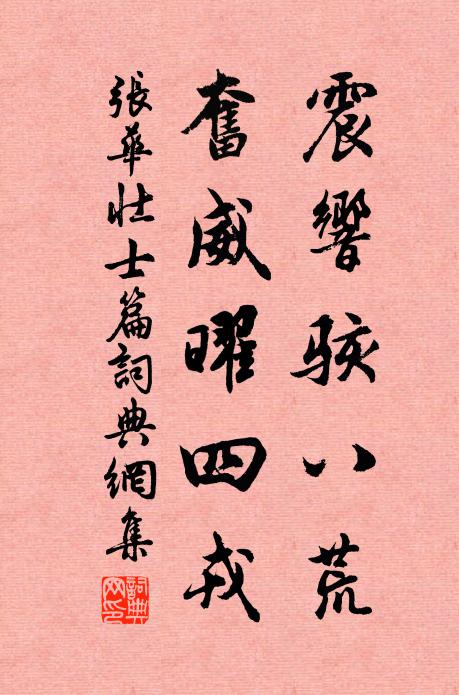 震響駭八荒
奮威曜四戎
張華壯士篇詞典網集
詞典网印